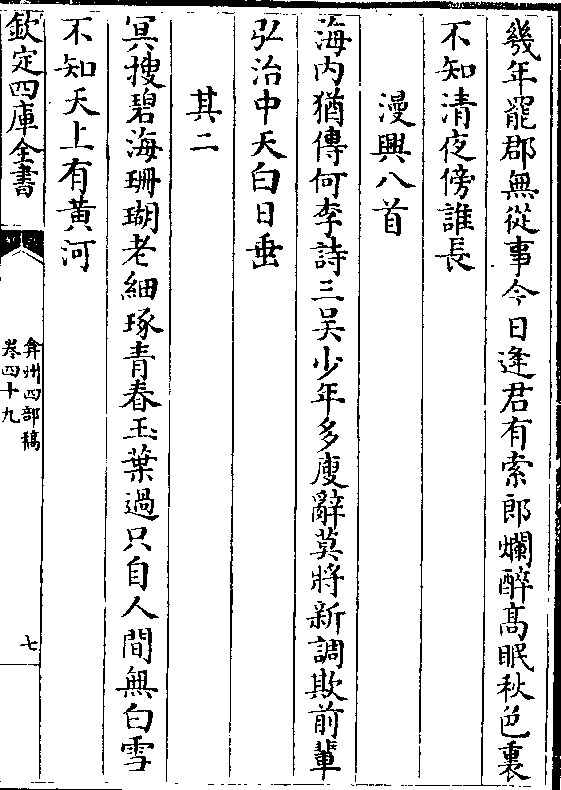 幾年罷郡無從事今日逢君有索郎爛醉髙眠秋色裏
不知清夜傍誰長
漫興八首
海内猶傳何李詩三吴少年多廋辭莫將新調欺前輩
弘治中天白日垂
其二
冥搜碧海珊瑚老細琢青春玉葉過只自人間無白雪
不知天上有黄河
欽定四庫全書
弇州四部稿
卷四十九
七